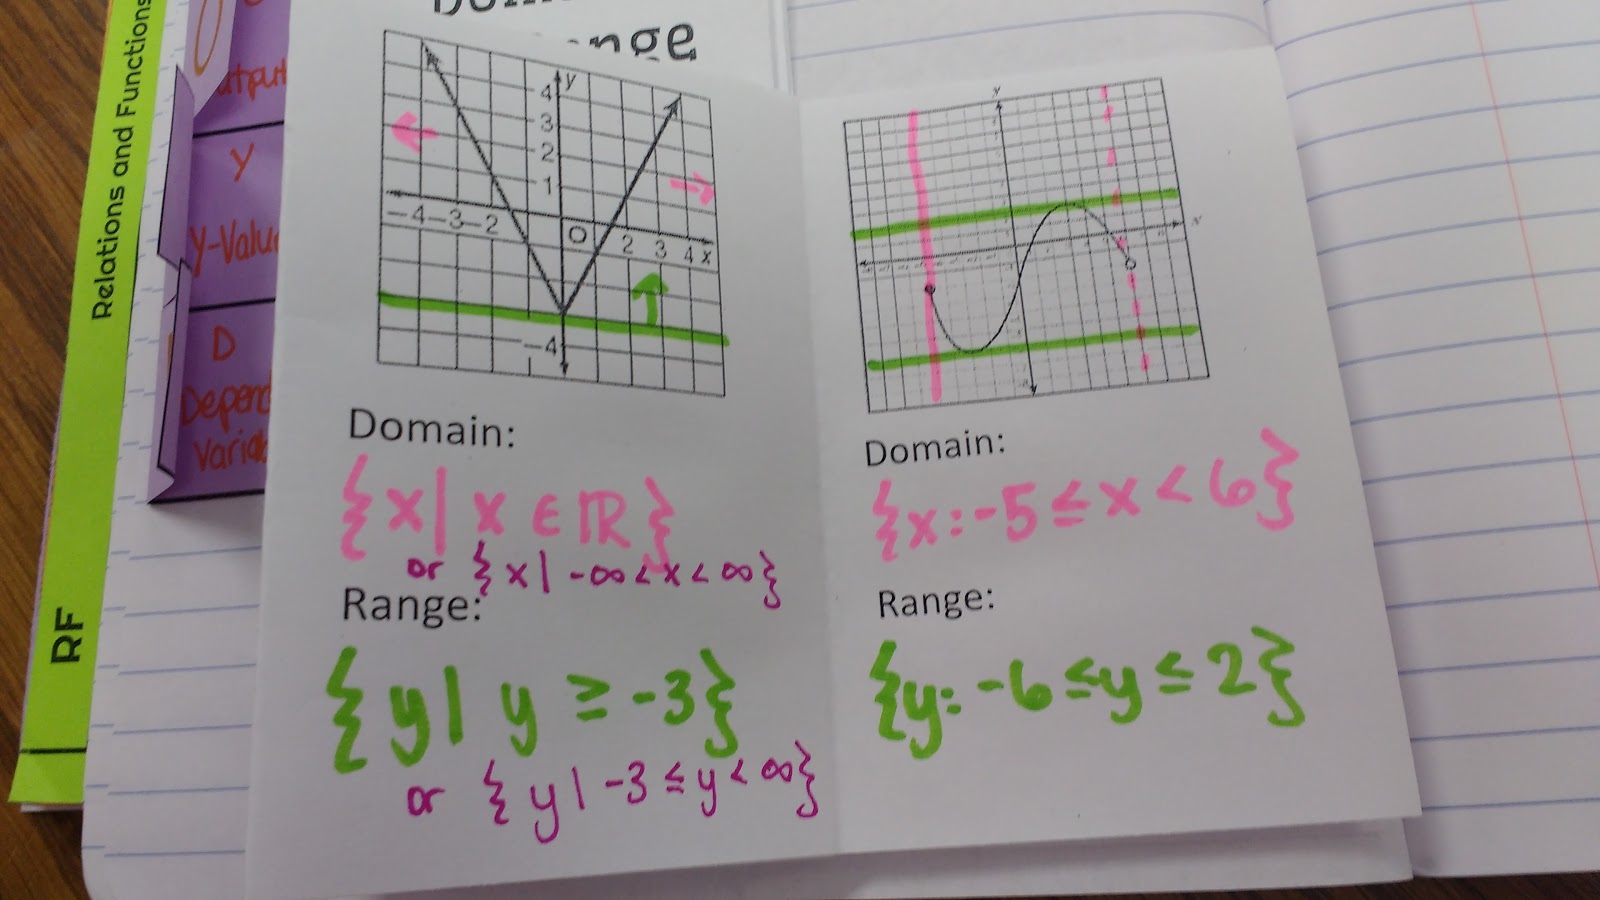 Relations and Functions
RF
Y
Y-Valu
D
Depend
Variab
nge
y
4
3
2
1
-4 -3 -2
O
2 3 4 x
-4
Domain:
{x| x ∈ ℝ}
or {x| -∞ < x < ∞}
Range:
{y| y ≥ -3}
or {y| -3 ≤ y < ∞}
y
x
Domain:
{x: -5 ≤ x < 6}
Range:
{y: -6 ≤ y ≤ 2}